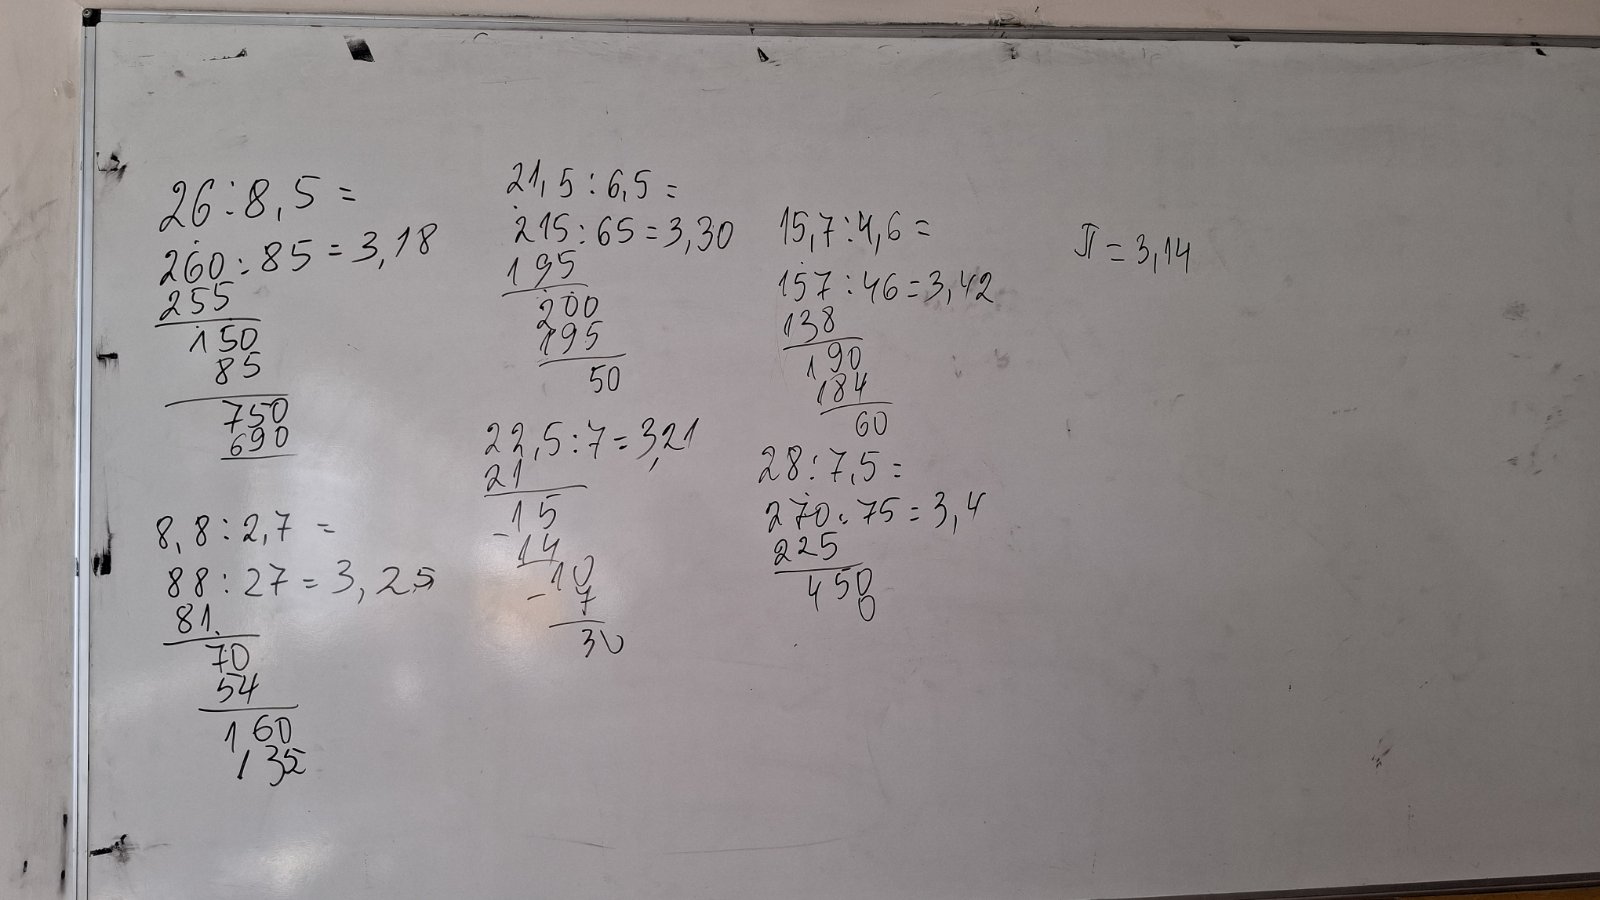 26:8,5=
260:85=3,18
255
150
85
750
690
8,8:2,7=
88:27=3,25
81
70
54
160
135
21,5:6,5=
215:65=3,30
195
200
195
50
22,5:7=3,21
21
-15
14
-10
7
30
15,7:4,6=
157:46=3,42
138
190
184
60
28:7,5=
270:75=3,4
225
450
0
π=3,14